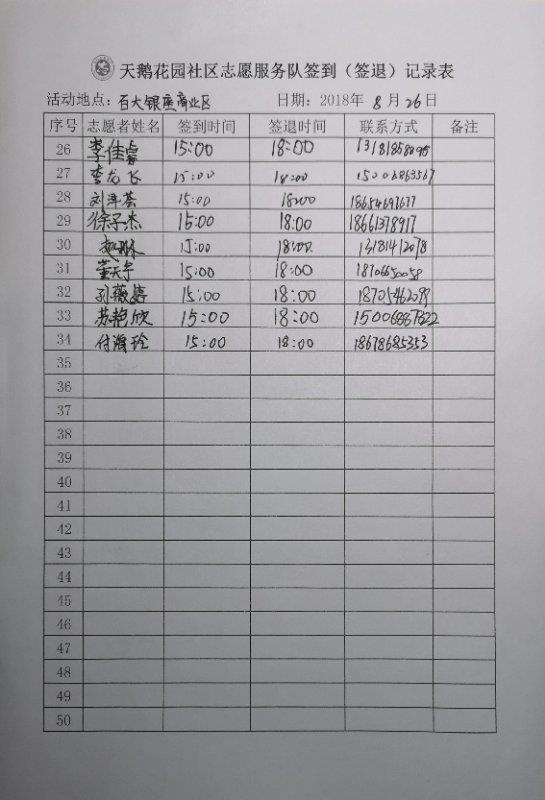 天鹅花园社区志愿服务队签到（签退）记录表
活动地点：百大银座商业区 日期：2018年 8 月 26 日
序号 志愿者姓名 签到时间 签退时间 联系方式 备注
26 李佳睿 15:00 18:00
27 李龙飞 15:00 18:00 15006863567
28 刘泽荟 15:00 18:00 18654697677
29 徐子杰 15:00 18:00 18661378917
30 15:00 18:00 13181412078
31 董天宇 15:00 18:00 18706650058
32 孙薇婷 15:00 18:00 18705462099
33 苏艳欣 15:00 18:00 15006887822
34 付海玲 15:00 18:00 18678685353
35
36
37
38
39
40
41
42
43
44
45
46
47
48
49
50